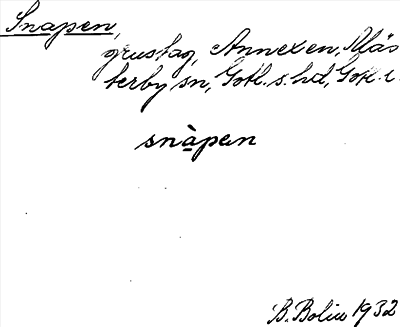 Snapen,
grustag, Annexen, Mäs
terby sn, Gotl. s. hd, Gotl. l.
snàpen
B. Bolin 1932